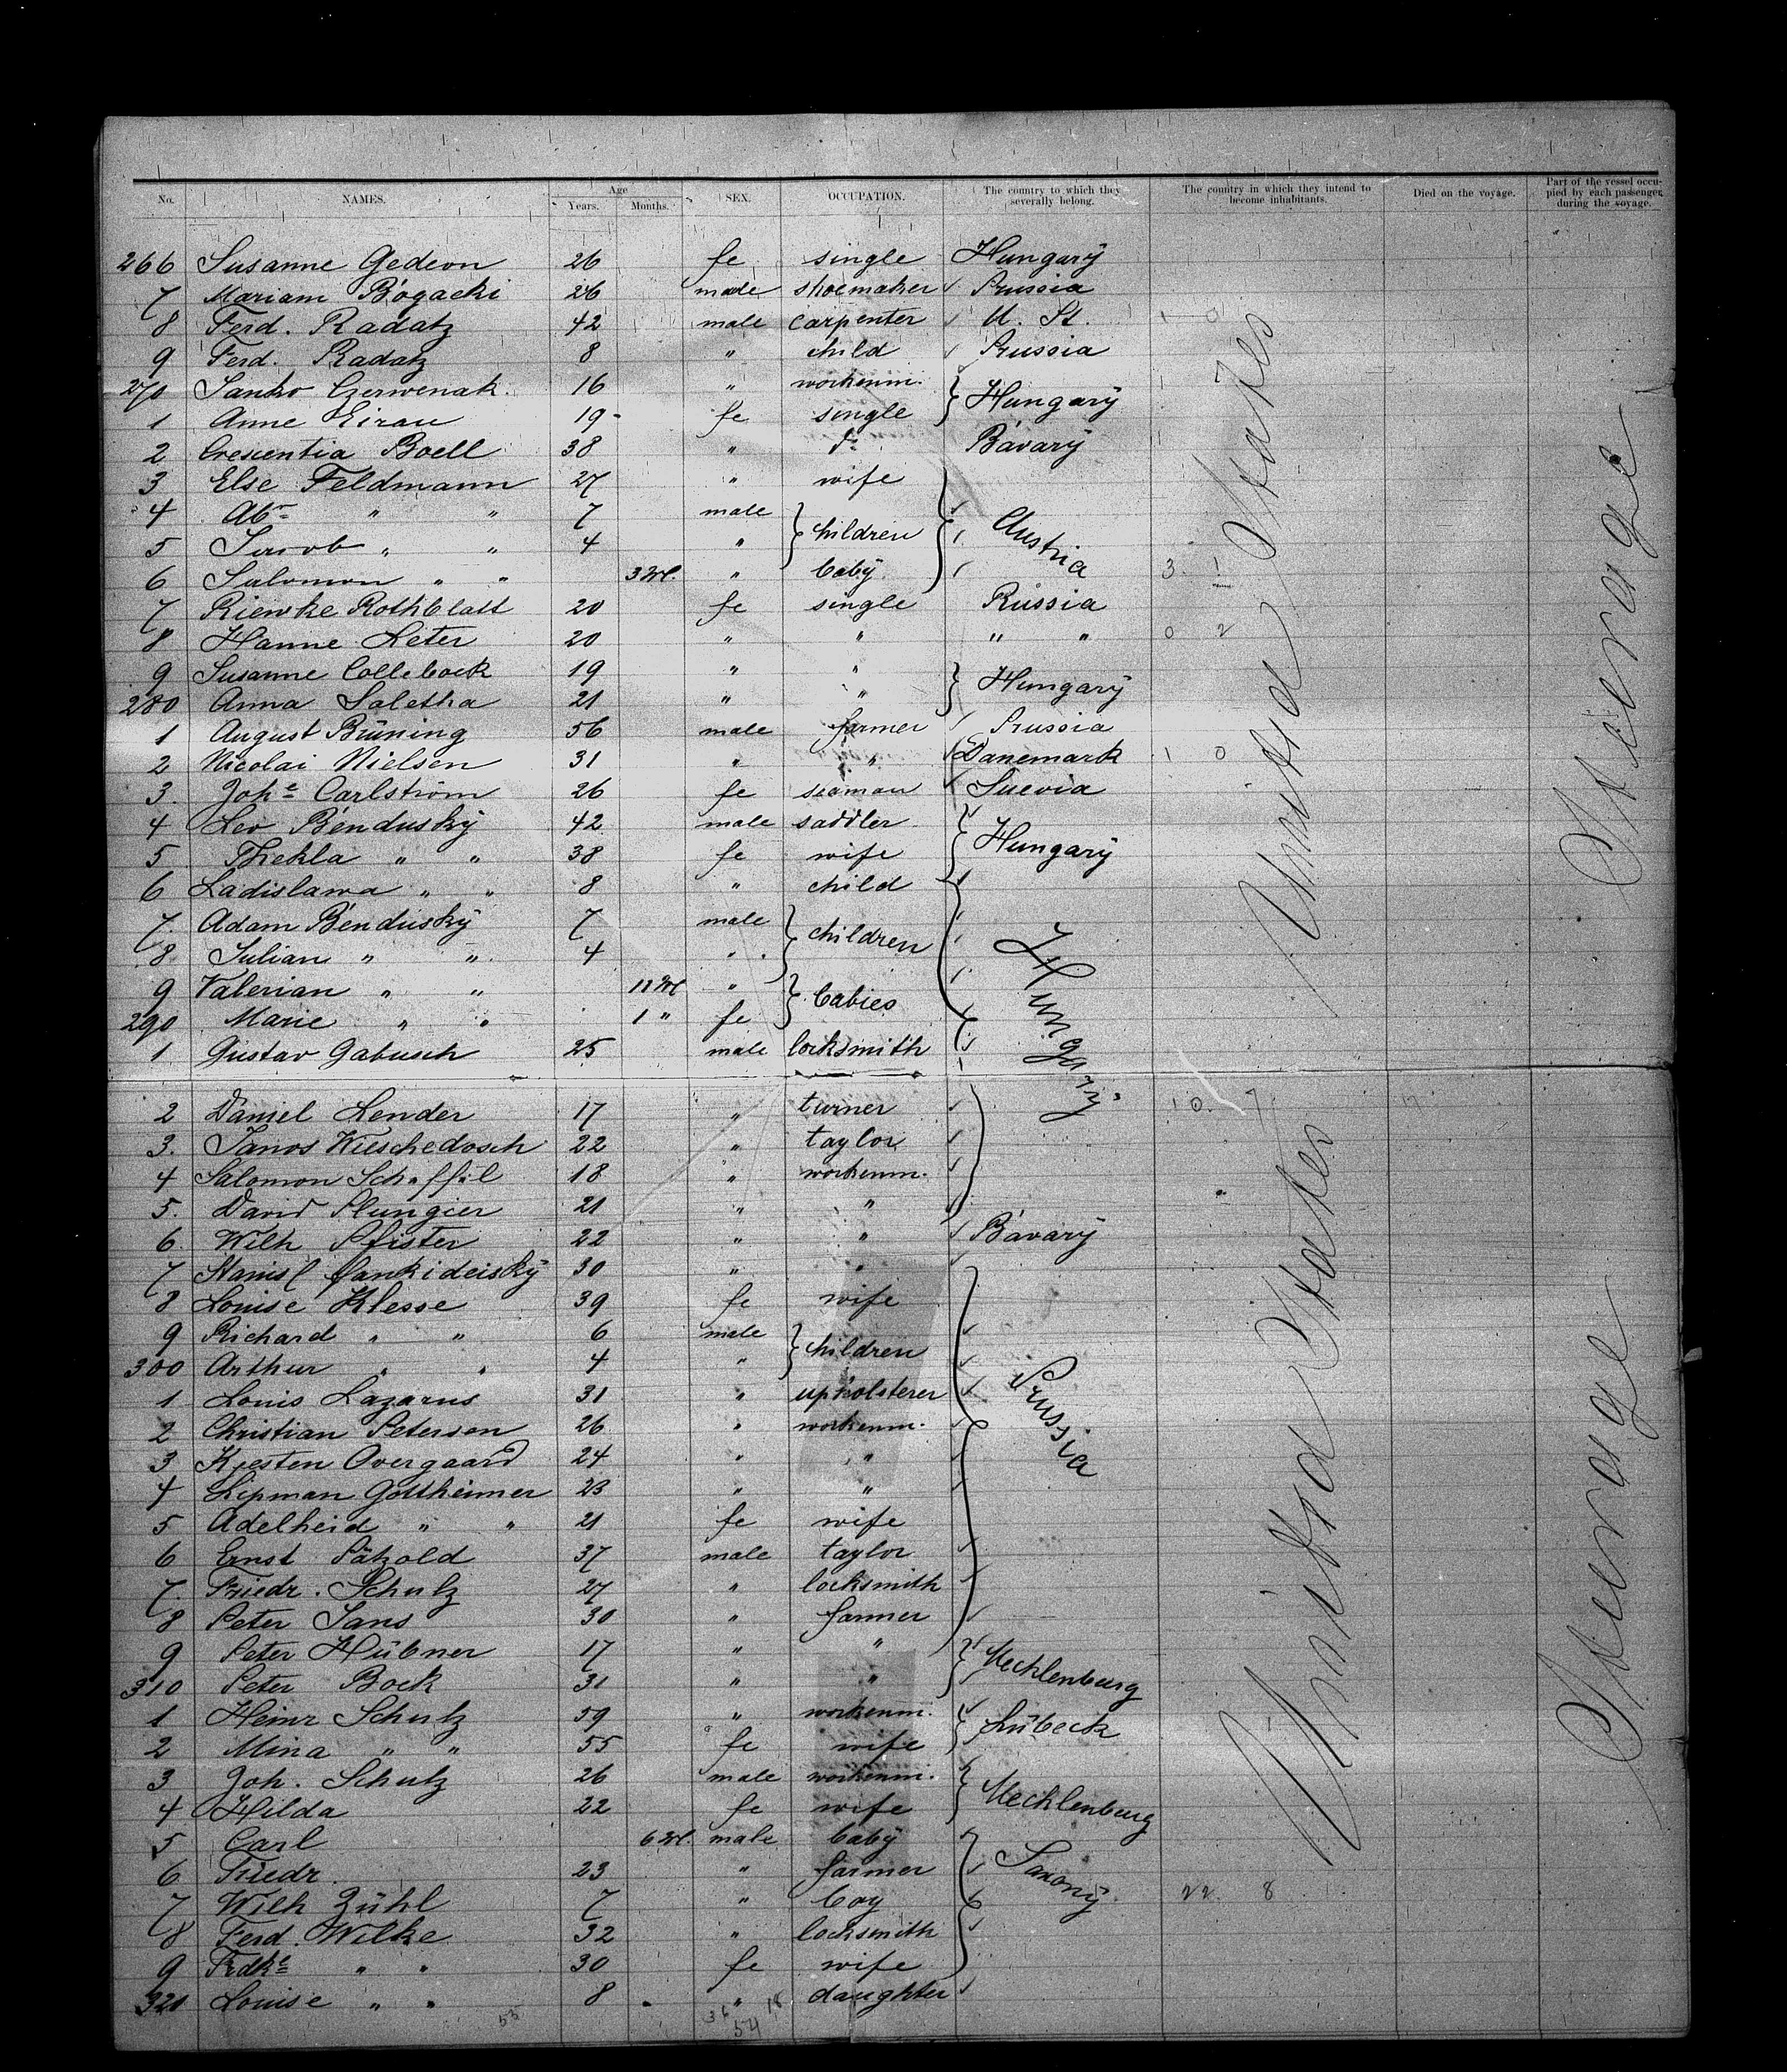 No. NAMES. Age Years. Months. SEX. OCCUPATION. The country to which they severally belong. The country in which they intend to become inhabitants. Died on the voyage. Part of the vessel occupied by each passenger during the voyage.
266 Susanne Gedeon 26 fe single Hungary
7 Mariam Bogacki 26 male shoemaker Prussia
8 Ferd. Radatz 42 male carpenter U. St. 1 0
9 Ferd. Radatz 8 " child Prussia
270 Janko Czerwenak. 16 " workenm. Hungary 1 7
1 Anne Eirau 19 fe single
2 Crescentia Boell 38 " do Bavary
3 Else Feldmann 27 " wife
4 Abr " " 7 male children Austria
5 Jacob " " 4 "
6 Salomon " " 3 M. " baby 3 1
7 Riewke Rothblatt 20 fe single Russia
8 Hanne Leter 20 " " " " 0 2
9 Susanne Collebock 19 " " Hungary
280 Anna Saletha 21 " "
1 August Brüning 56 male farmer Prussia
2 Nicolai Nielsen 31 " " Danemark 1 0
3. Johe Carlström 26 fe seaman Suevia
4 Leo Bendusky 42 male saddler Hungary
5 Thekla " " 38 fe wife
6 Ladislawa " " 8 " child
7. Adam Bendusky 7 male children Hungary
8. Julian " " 4 "
9 Valerian " " 11 M " babies
290 Marie " " 1 " fe
1 Gustav Gabusch 25 male locksmith
2 Daniel Lender 17 " turner 10 7
3. Janos Wieschedosch 22 " taylor
4 Salomon Scheffel 18 " workenm.
5. David Plungier 21 " "
6. Wilh Pfister 22 " " Bavary
7 Stanisl 30 " "
8 Louise Klesse 39 fe wife
9 Richard " " 6 male children
300 Arthur " " 4 "
1 Louis Lazarus 31 " upholsterer Prussia
2 Christian Petersen 26 " workenm.
3 Kjesten Overgaard 24 " "
4 Lipman Gottheimer 23 " "
5 Adelheid " " 21 fe wife
6 Ernst Pätzold 37 male taylor
7. Friedr. Schulz 27 " locksmith
8 Peter Jans 30 " farmer
9 Peter Hübner 17 " " Mecklenburg
310 Peter Bock 31 " "
1 Heinr Schulz 59 " workenm. Lübeck
2 Mina " " 55 fe wife
3 Joh. Schulz 26 male workenm. Mecklenburg
4 Hilda 22 fe wife
5 Carl 6 M. male baby
6 Friedr. 23 " farmer Saxony
7 Wilh Zühl 7 " boy 22 8
8 Ferd. Wilke 32 " locksmith
9 Frdke " " 30 fe wife
320 Louise " " 8 " daughter
53 36 18
54
United States
United States
Steerage
Steerage